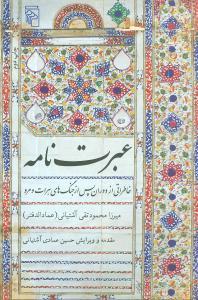 عبرت نامه
خاطراتی از دوران پس از جنگ‌های هرات و مرو
میرزا محمود تقی آشتیانی (عمادالدفتر)
مقدمه و ویرایش حسین عمادی آشتیانی